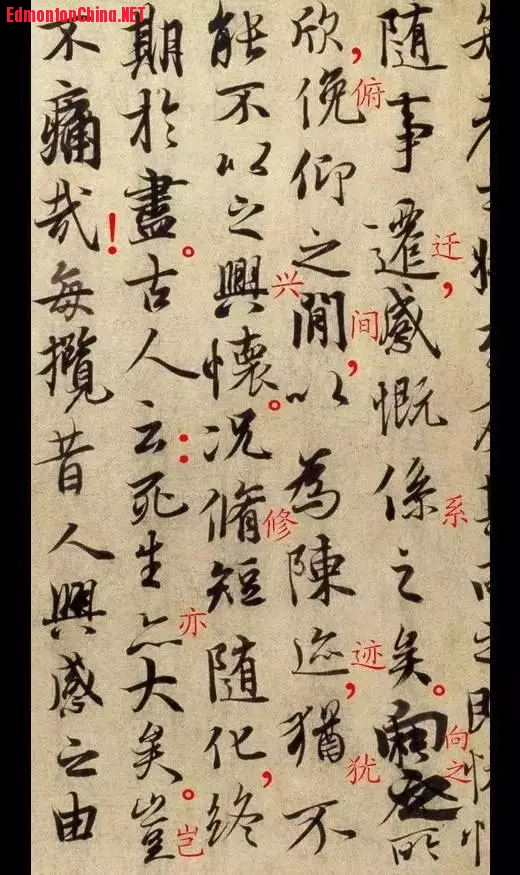 EdmontonChina.NET
隨事遷，感慨係之矣。向之所
迁
系
向之
欣，俛仰之閒，以為陳迹，猶不
俯
间
迹
犹
能不以之興懷。況脩短隨化，終
兴
修
期於盡。古人云：死生亦大矣。豈
亦
岂
不痛哉！每攬昔人興感之由